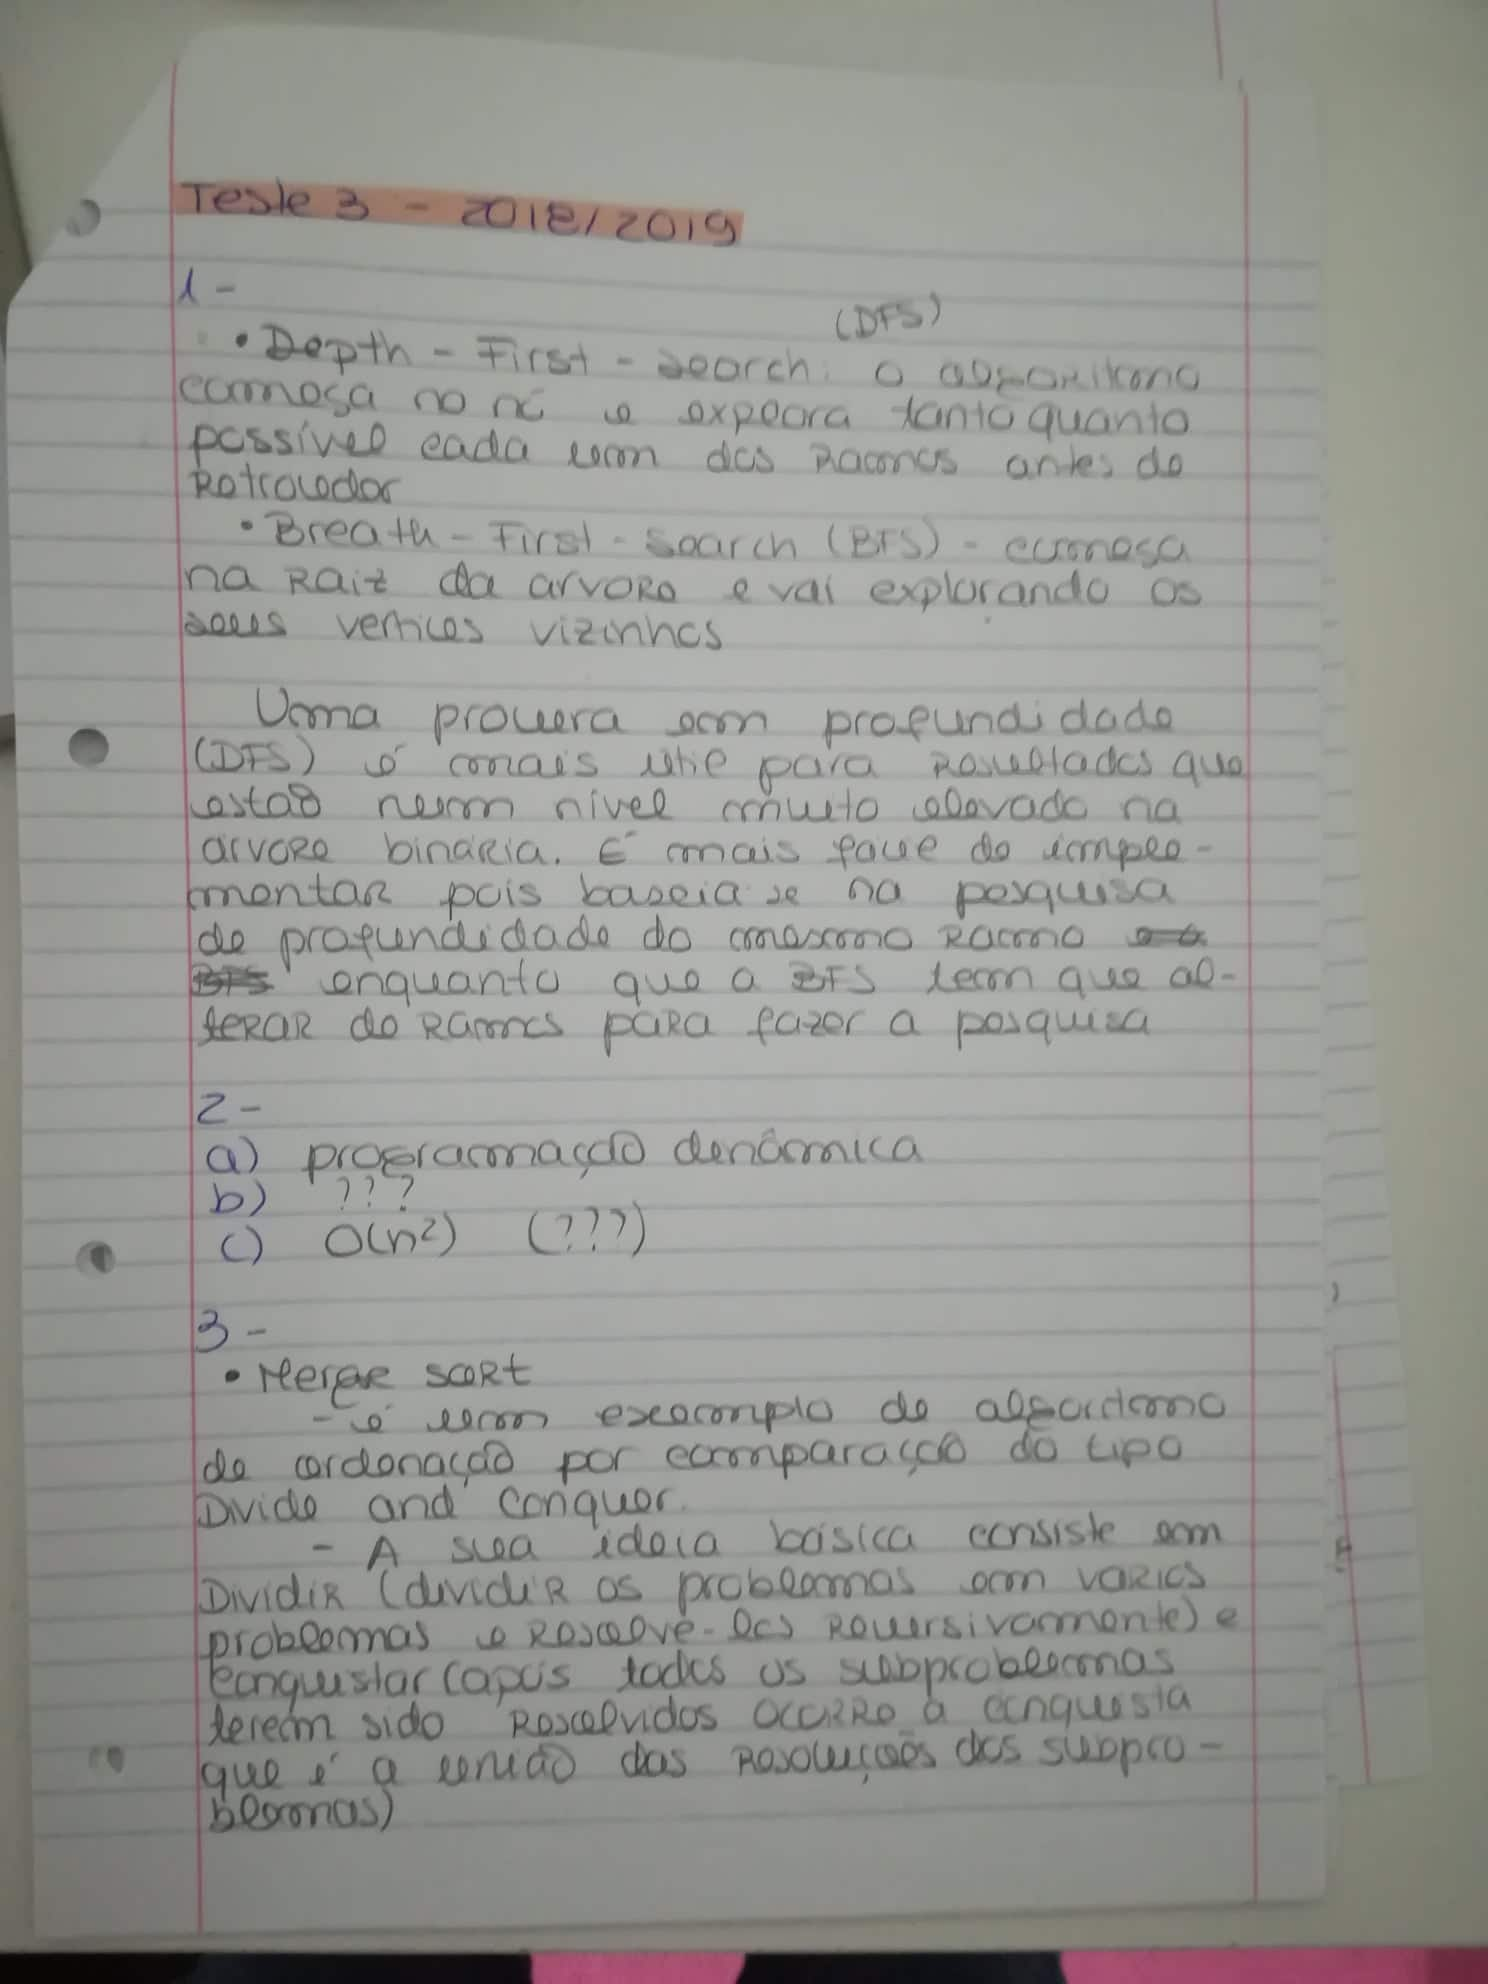 Teste 3 - 2018/2019
1 -
(DFS)
• Depth - First - search: o algoritmo
começa no nó e explora tanto quanto
possível cada um dos Ramos antes de
Retroceder
• Breath - First - Search (BFS) - começa
na Raiz da arvore e vai explorando os
seus vertices vizinhos
Uma procura em profundidade
(DFS) é mais útil para Resultados que
estão num nível muito elevado na
árvore binária. É mais fácil de imple-
mentar pois baseia-se na pesquisa
de profundidade do mesmo Ramo
BFS enquanto que a BFS tem que al-
terar de Ramos para fazer a pesquisa
2 -
a) programação denâmica
b) ???
c) O(n²) (???)
3 -
• Merge sort
- é um exemplo de algoritmo
de ordenação por comparação do tipo
Divide and Conquer.
- A sua ideia básica consiste em
Dividir (dividir os problemas em varios
problemas e Resolve-los Recursivamente) e
Conquistar (após todos os subproblemas
terem sido Resolvidos ocorre a conquista
que é a união das Resoluções dos subpro-
blemas)